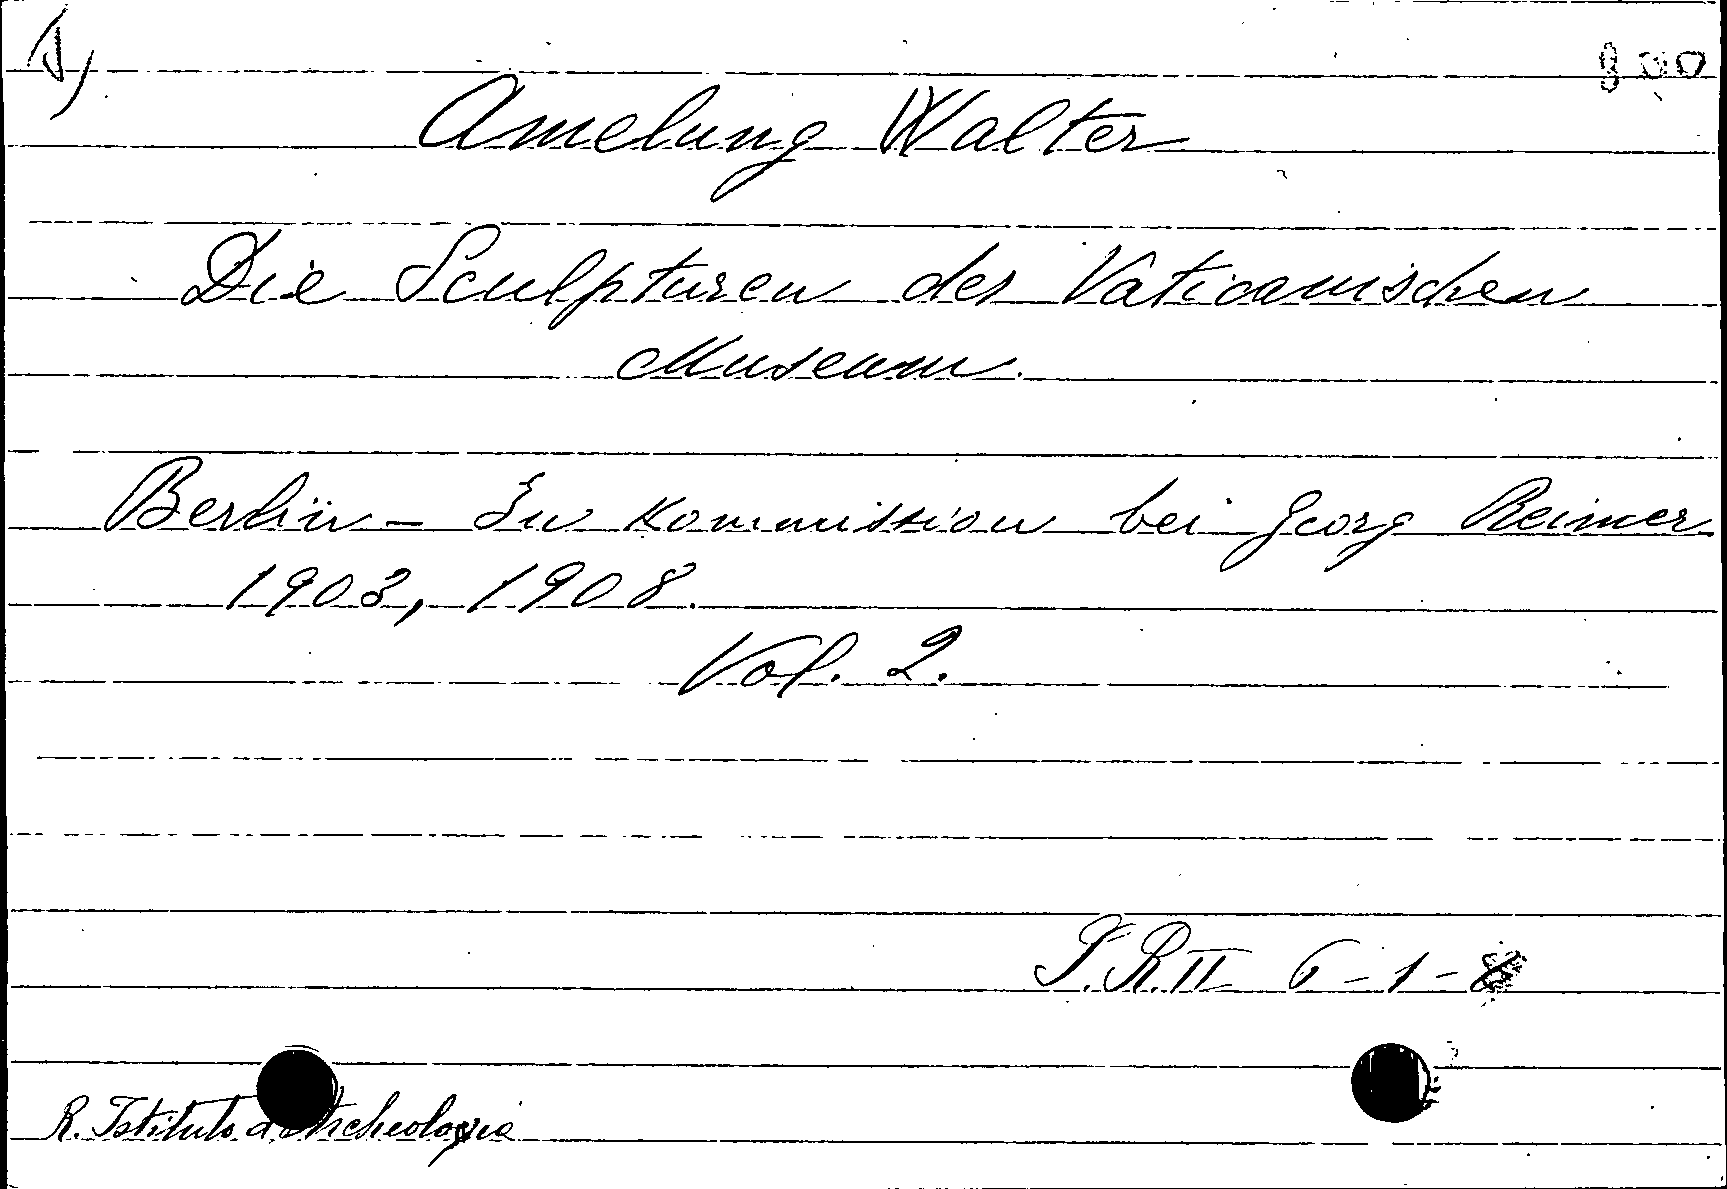 Amelung Walter
Die Sculpturen des Vaticanischen
Museum.
Berlin - In Kommission bei Georg Reimer
1903, 1908.
Vol. 2.
S. R. II 6-1-8
R. Istituto d'Archeologia